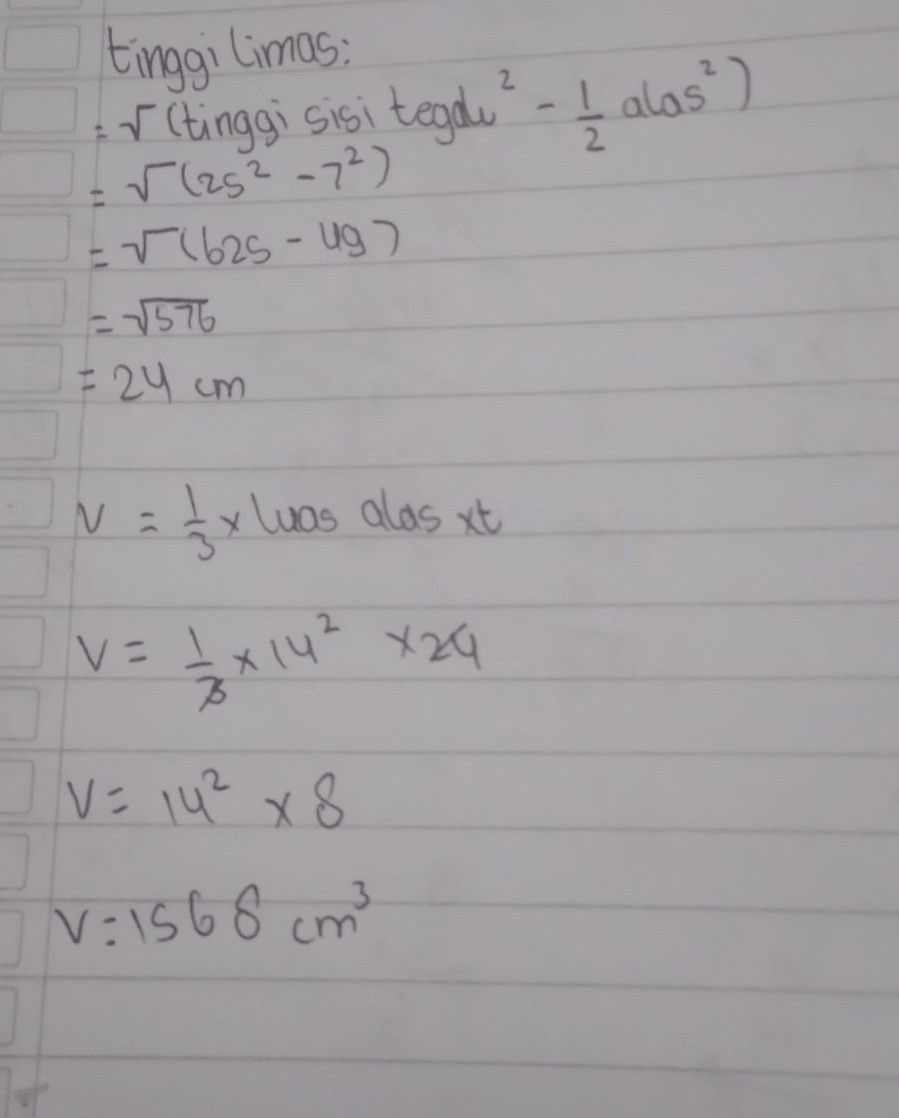 tinggi limas:
= √(tinggi sisi tegak² - 1/2 alas²)
= √(25² - 7²)
= √(625 - 49)
= √576
= 24 cm
V = 1/3 x luas alas xt
V = 1/3 x 14² x 24
V = 14² x 8
V = 1568 cm³